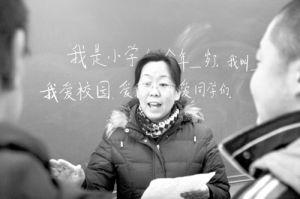 我是小学 今年_岁，我叫
我爱校园 爱 爱同学们